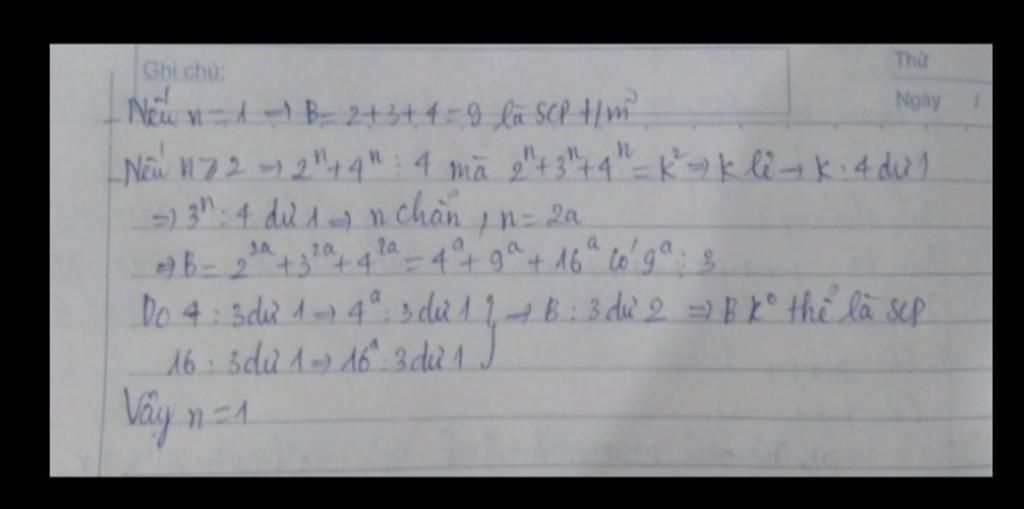 Ghi chú:
Thứ
Ngày /
Nếu n = 1 → B = 2+3+4 = 9 là SCP t/m
Nếu n ≥ 2 → 2ⁿ + 4ⁿ ⋮ 4 mà 2ⁿ + 3ⁿ + 4ⁿ = k² → k lẻ → k : 4 dư 1
⇒ 3ⁿ : 4 dư 1 ⇒ n chẵn, n = 2a
⇒ B = 2²ᵃ + 3²ᵃ + 4²ᵃ = 4ᵃ + 9ᵃ + 16ᵃ có 9ᵃ ⋮ 3
Do 4 : 3 dư 1 → 4ᵃ : 3 dư 1 } → B : 3 dư 2 ⇒ B k° thể là SCP
16 : 3 dư 1 → 16ᵃ : 3 dư 1
Vậy n = 1